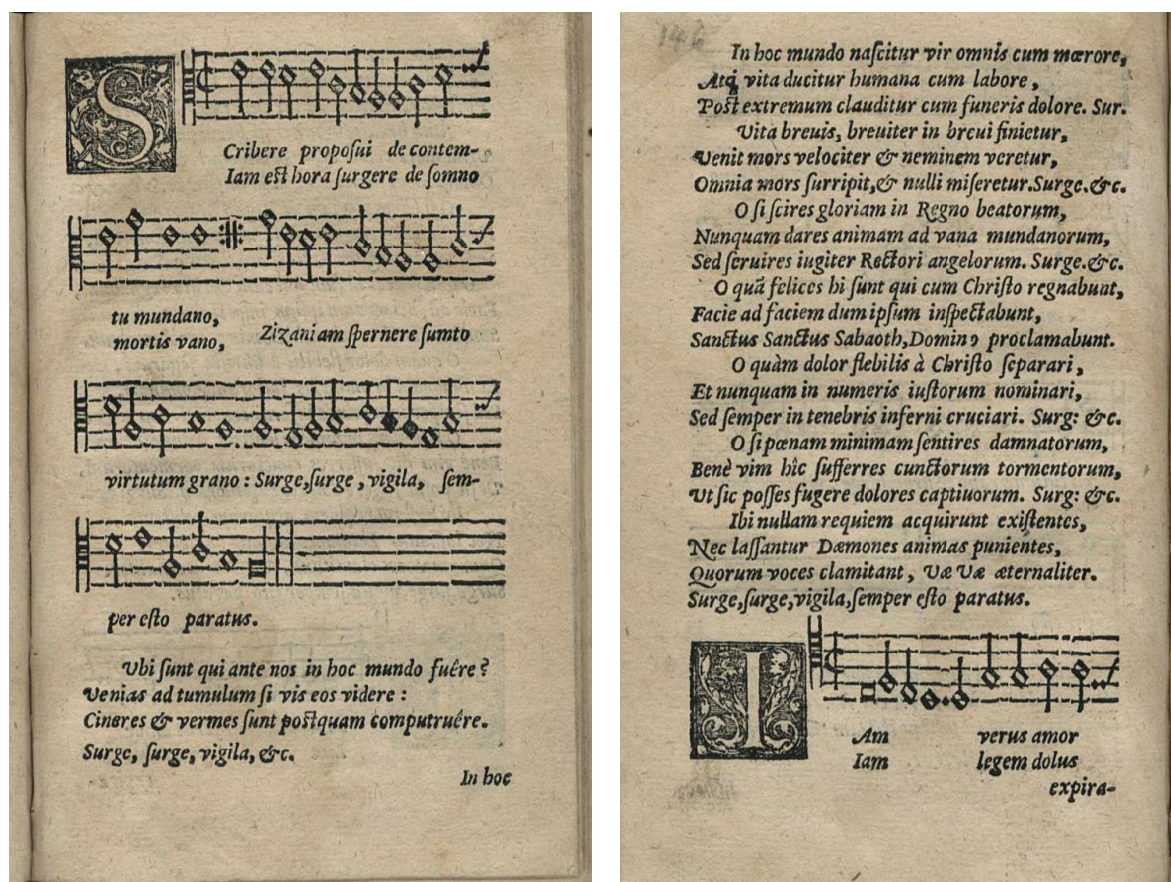 S
Cribere proposui de contem-
Iam est hora surgere de somno
tu mundano,
mortis vano,
Zizaniam spernere sumto
virtutum grano : Surge, surge, vigila, sem-
per esto paratus.
Vbi sunt qui ante nos in hoc mundo fuêre ?
Venias ad tumulum si vis eos videre :
Cineres & vermes sunt postquam computruêre.
Surge, surge, vigila, &c.
In hoc
146
In hoc mundo nascitur vir omnis cum mœrore,
Atq; vita ducitur humana cum labore,
Post extremum clauditur cum funeris dolore. Sur.
Vita breuis, breuiter in breui finietur,
Venit mors velociter & neminem veretur,
Omnia mors surripit, & nulli miseretur. Surge. &c.
O si scires gloriam in Regno beatorum,
Nunquam dares animam ad vana mundanorum,
Sed seruires iugiter Rectori angelorum. Surge. &c.
O quã felices hi sunt qui cum Christo regnabunt,
Facie ad faciem dum ipsum inspectabunt,
Sanctus Sanctus Sabaoth, Domino proclamabunt.
O quàm dolor flebilis à Christo separari,
Et nunquam in numeris iustorum nominari,
Sed semper in tenebris inferni cruciari. Surg: &c.
O si pœnam minimam sentires damnatorum,
Benè vim hîc sufferres cunctorum tormentorum,
Vt sic posses fugere dolores captiuorum. Surg: &c.
Ibi nullam requiem acquirunt existentes,
Nec lassantur Dæmones animas punientes,
Quorum voces clamitant, Væ Væ æternaliter.
Surge, surge, vigila, semper esto paratus.
I
Am verus amor
Iam legem dolus
expira-